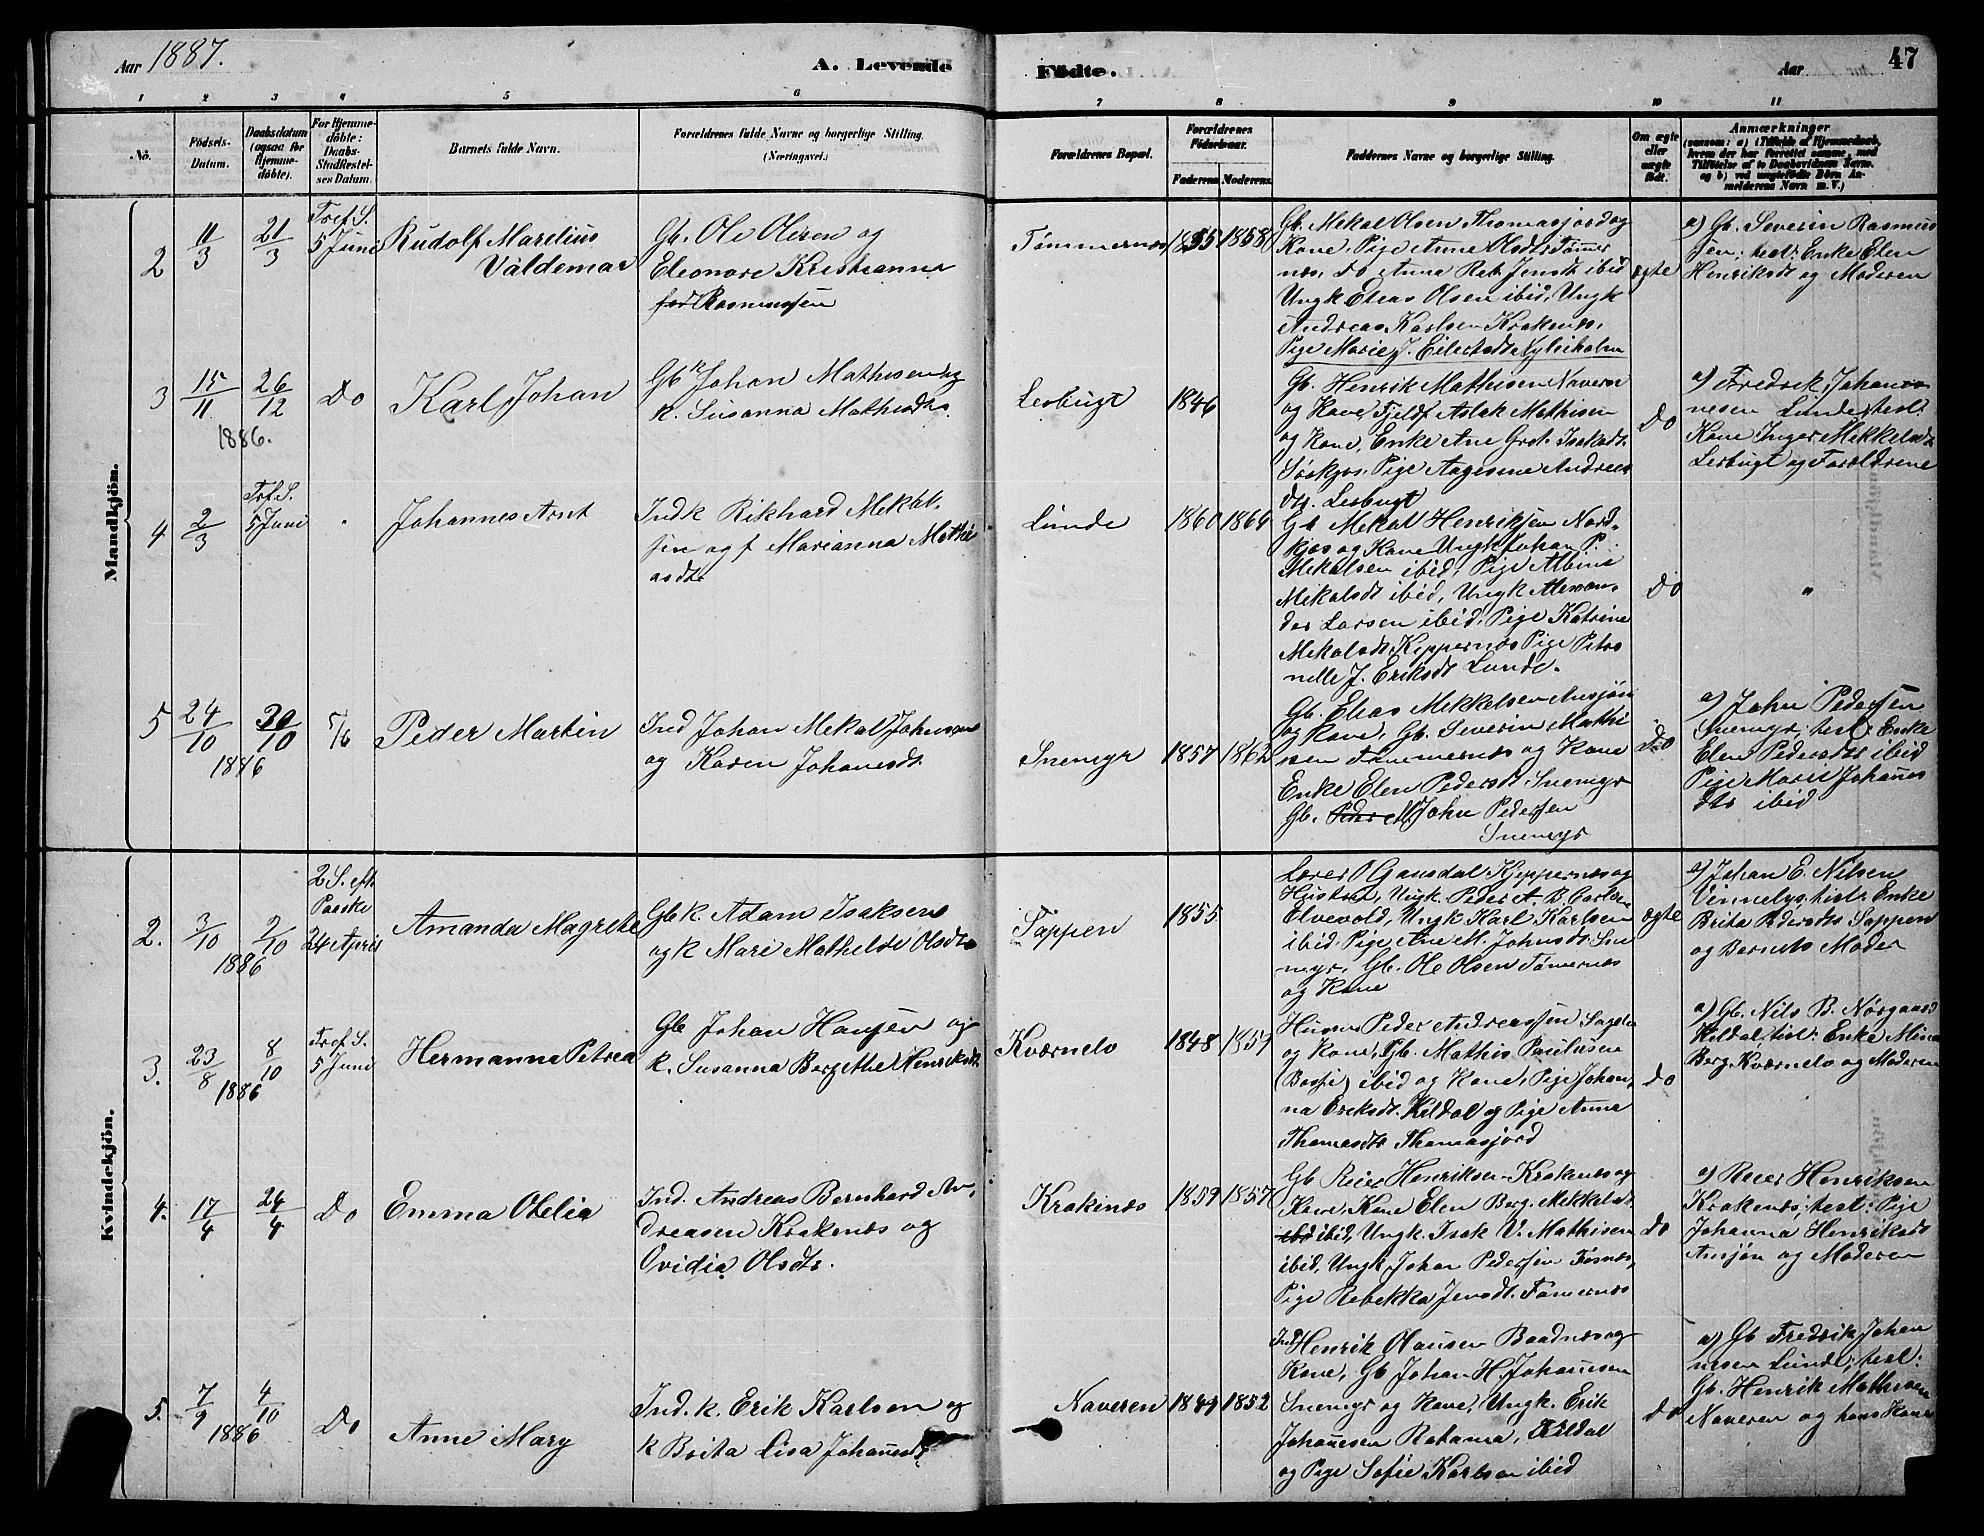 Aar 1887.
A. Levende
Födte.
Aar
47
1 2 3 4 5 6 7 8 9 10 11
No.
Födsels-
Datum.
Daabsdatum
(ogsaa for
Hjemme-
döbte).
For Hjemme-
döbte:
Daabs-
Stadfæstel-
ses Datum.
Barnets fulde Navn.
Forældrenes fulde Navne og borgerlige Stilling.
(Næringsvei.)
Forældrenes Bopæl.
Forældrenes
Födselsaar.
Faderens. Moderens.
Faddernes Navne og borgerlige Stilling.
Om ægte
eller
uægte
födt.
Anmærkninger
Mandkjön.
2
11/3
21/3
Tref. S.
5 Juni
Rudolf Marelius
Valdemar
Gb. Ole Olsen og
Eleonore Kristianna
fød Rasmussen
Tømmernæs
1855 1858
Gb. Mekal Olsen Thomasjord og
Kone, Pige Anne Olsdt. Tømmer
næs, do Anna Reb. Jensdt. ibid
Ungk Elias Olsen ibid, Ungk
Andreas Karlsen Krakenæs,
Pige Marie J. Eilertsdt
ægte
a) Gb. Severin Rasmus
sen; test: Enke Elen
Henriksdt og Moderen
3
15/11
26/12
1886.
Do
Karl Johan
Gbr Johan Mathisen og
k. Susanna Mathisdtr.
Lesbugt
1846
Gb. Henrik Mathisen Naveren
og Kone, Fjeldf Aslak Mathisen
og Kone, Enke Ane Gret. Isaksdt.
Pige Andreas
dtr. Lesbugt
Do
a) Fredrik Johan
nesen Lunde, test:
Kone Inger Mekkelsdt
Lesbugt og Forældrene
4
2/3
Tref. S.
5 Juni
"
Johannes Arnt
Ind k Rikhard Mekal-
sen og f Marianna Mathi
asdtr
Lunde
1860 1864
Gb Mekal Henriksen Nord-
kjos og Kone Ungk Johan P.
Mekalsen ibid; Pige Albine
Mikalsdt ibid, Ungk Alexan-
der Larsen ibid. Pige Katrine
Mekalsdt Kippernæs Pige Petro
nelle J. Eriksdt Lunde.
Do
"
5
24/10
30/10
1886
5/6
Peder Martin
Ind Johan Mekal Johnsen
og Karen Johanesdt.
Snemyr
1857 1862
Gb. Elias Mekkelsen Ansjøn
og Kone, Gb. Severin Mathi
sen Tømmernæs og Kone
Enke Elen Pedersdt Snemyr
Gb. John Pedersen
Snemyr
Do
a) John Pedersen
Snemyr; test: Enke
Elen Pedersdtr ibid
Pige Marie Johannes
dtr ibid
Kvindekjön.
2.
3/10
7/10
1886
2 S. eft.
Paaske
24 April
Amanda Magrete
Gb k. Adam Isaksen
og k Mari Mathilde Olsdtr
Sappen
1855
Lærer O Gausdal Kippernæs og
Hustru, Ungk. Peder A. B. Carlsen
Elvevold, Ungk Karl Karlsen
ibid. Pige Ane M. Johnsdt. Sne
myr, Gb. Ole Olsen Tømernæs
og Kone
ægte
a) Johan E. Nilsen
Vinnelys, test: Enke
Brita Pedersdtr Sappen
og Barnets Moder
3.
23/8
8/10
1886
Tref. S.
5 Juni
Hermanna Petrea
Gb Johan Hansen og
k. Susanna Bergethe Henriksdt.
Kværnelv
1848 1859
Husm Peder Andreassen Sagelv
og Kone, Gb. Mathis Paulusen
ibid og Kone, Pige Johan,
na Eriksdt. Kildal og Pige Anna
Thomasdtr Thomasjord
Do
a) Gb. Nils B. Nørgaard
Kildal, test: Enke Mina
Berg. Kværnelv og Moderen
4.
17/4
24/4
Do
Emma Otelia
Ind. Andreas Bernhard An,
dreasen Krakenæs og
Ovidia Olsdtr.
Krakenæs
1859 1857
Gb Reier Henriksen Krakenæs og
Kone, Kone Elen Berg. Mekkelsdt.
ibid, Ungk. Isak V. Mathisen
ibid, Ungk Johan Pedersen Tømnæs,
Pige Rebekka Jensdt. Tømernæs
Do
a) Reier Henriksen
Krakenæs; test: Pige
Johanna Henriksdt
Ansjøn og Moderen
5.
7/9
4/10
1886
Do
Anne Mary
Ind. k. Erik Karlsen og
k Brita Lisa Johannesdt.
Naveren
1849 1852
Ind Henrik Olausen Baadnæs og
Kone, Gb Johan H. Johannesen
Snemyr og Kone, Ungk. Erik
Johannesen Rotama, Kildal
og Pige Sofie Karlsen ibid
Do
a) Gb Fredrik Johan
nesen Lunde; test:
Gb. Henrik Mathisen
Naveren og hans Kone